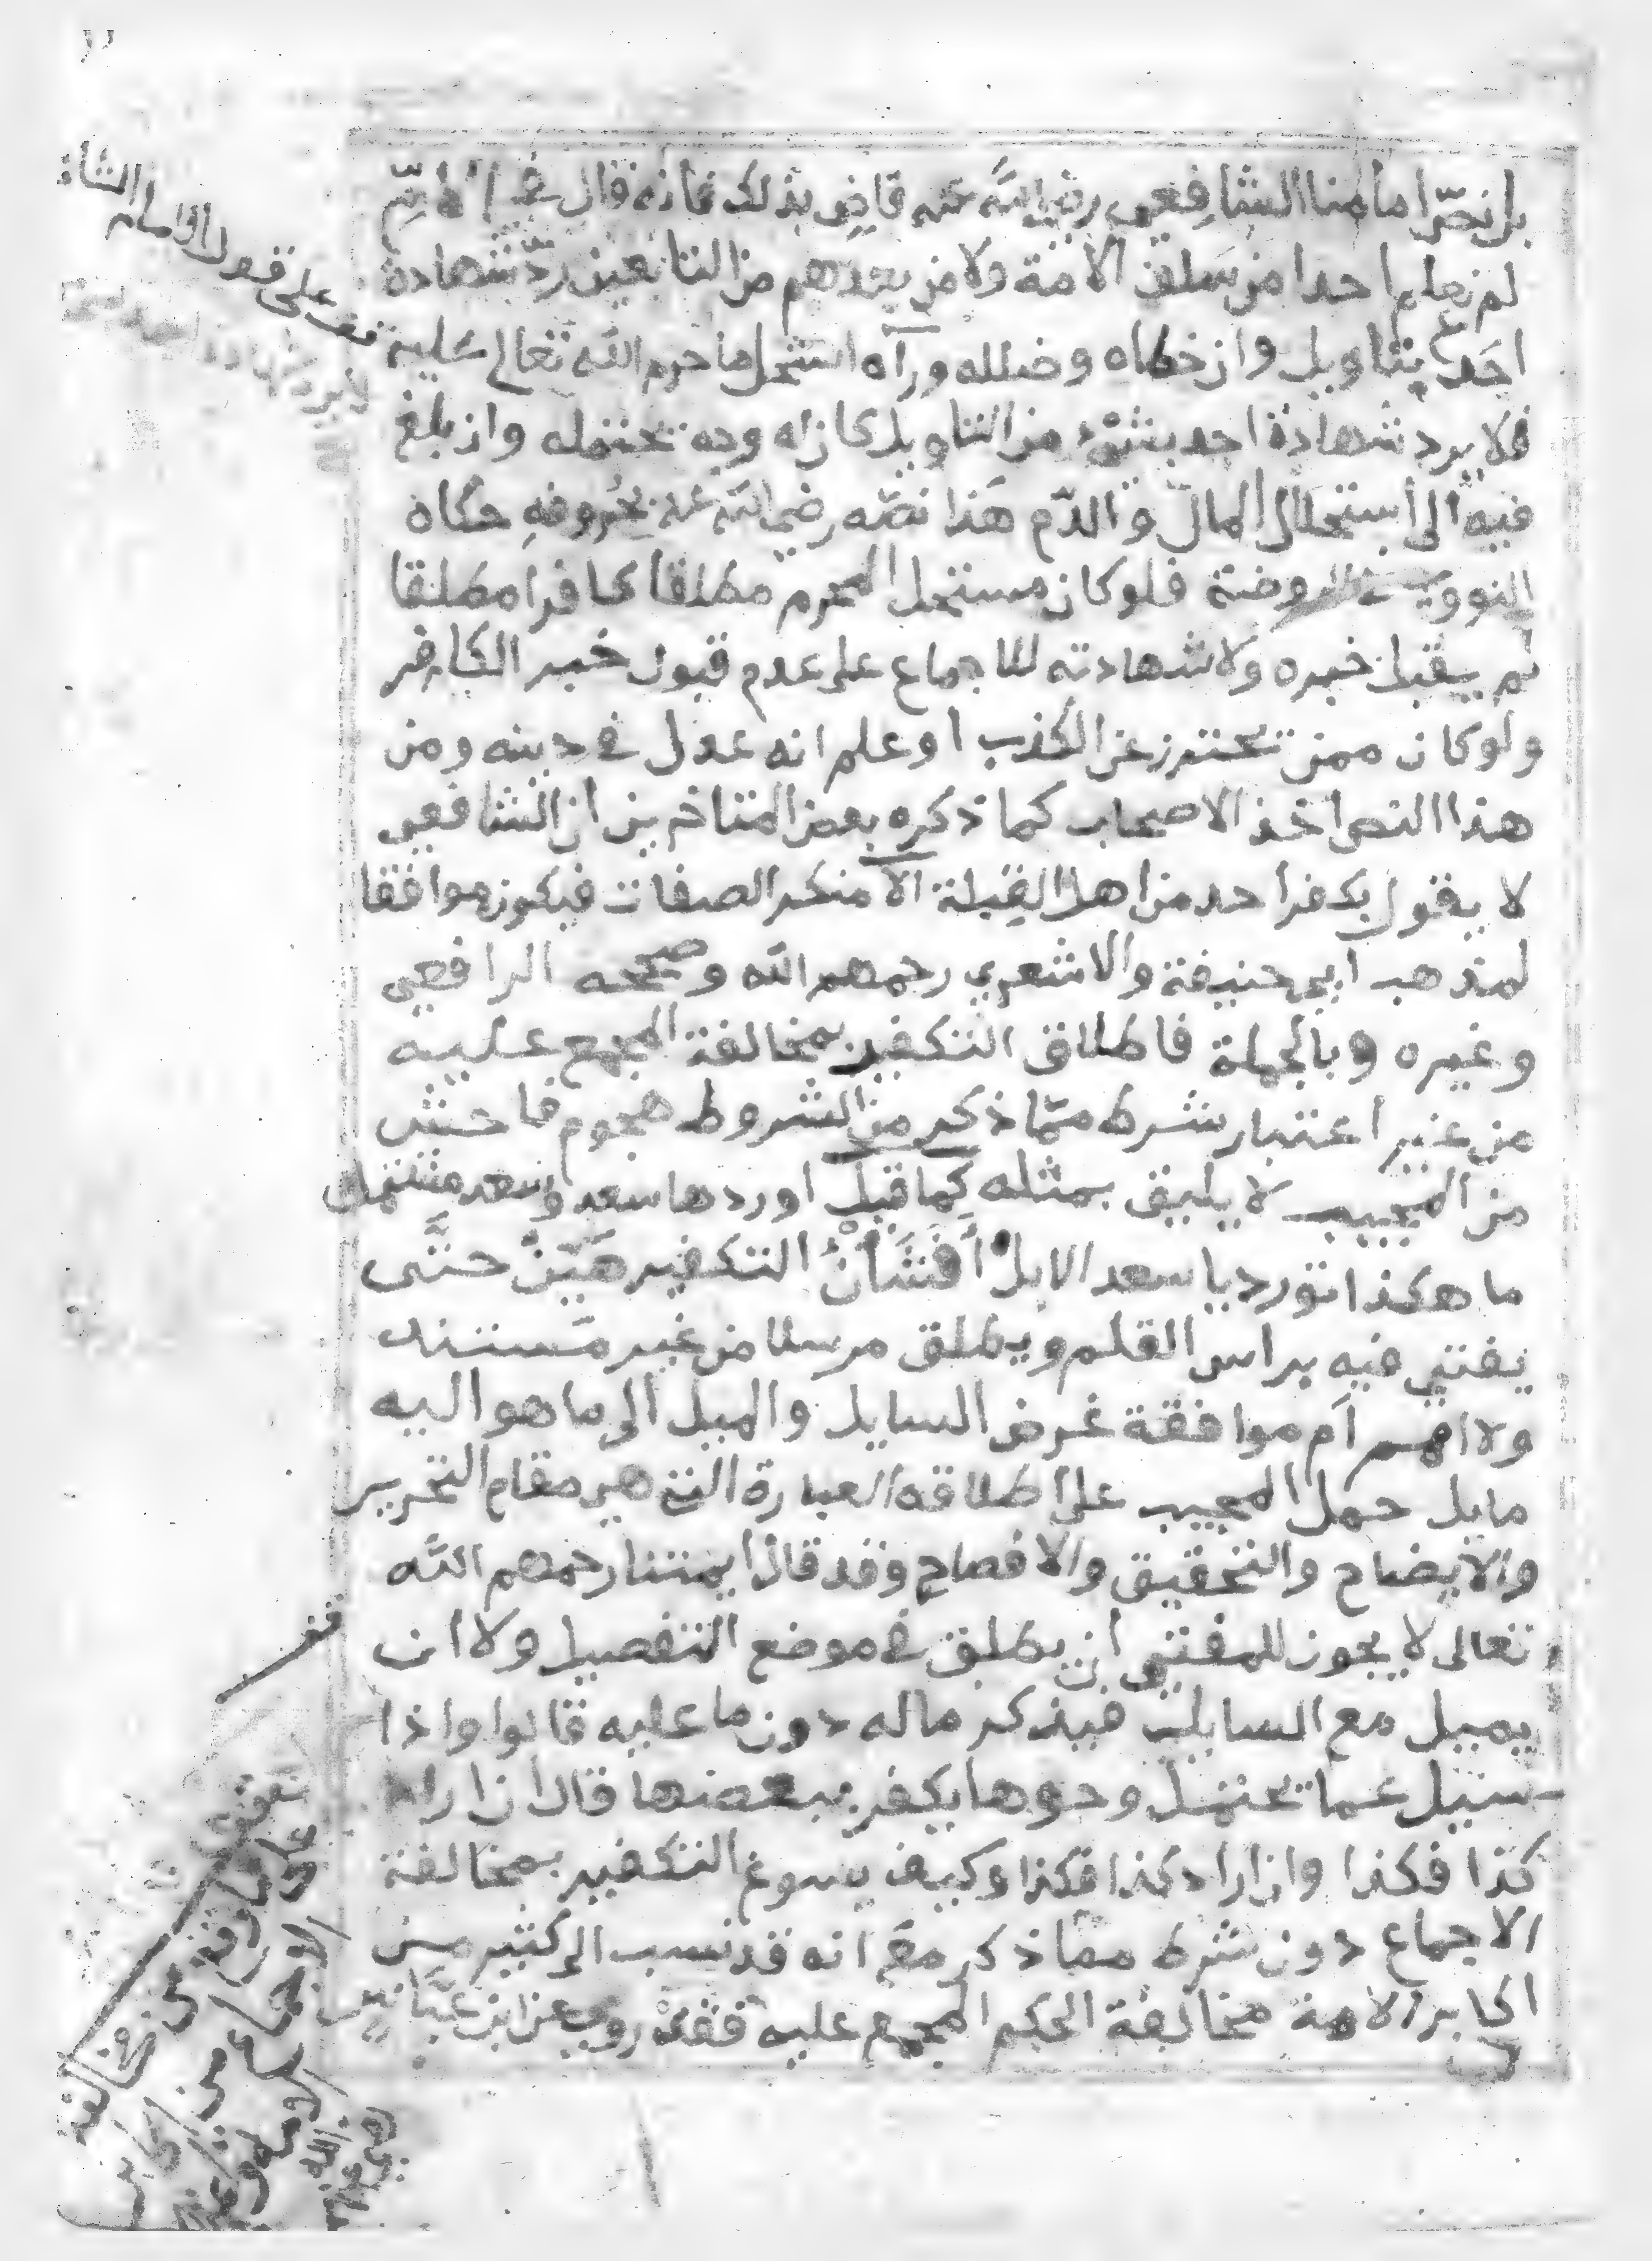 بل نص امامنا الشافعي رضي الله عنه قاض بذلك فانه قال في الام
لم نعلم احدا من سلف الامة ولا من بعدهم من التابعين رد شهادة
احد بتاويل وان خطاه وضلله ورآه استحل ما حرم الله تعالى عليه
فلا يرد شهادة احد بشئ من التاويل كان له وجه تحتمله وان بلغ
فيه الى استحلال المال والدم هذا نصه رضي الله عنه بحروفه حكاه
النووي في الروضة فلو كان مستحل المحرم مطلقا كافرا مطلقا
لم يقبل خبره ولا شهادته للاجماع على عدم قبول خبر الكافر
ولو كان ممن تحترز عن الكذب او علم انه عدل في دينه ومن
هذا النص اخذ الاصحاب كما ذكره بعض المتاخرين ان الشافعي
لا يقول بكفر احد من اهل القبلة الا منكر الصفات فيكون موافقا
لمذهب ابي حنيفة والاشعري رحمهم الله وصححه الرافعي
وغيره وبالجملة فاطلاق التكفير بمخالفة المجمع عليه
من غير اعتبار شرط مما ذكر من الشروط هجوم فاحش
من المجيب لا يليق بمثله كما قيل اوردها سعد وسعد مشتمل
ما هكذا تورد يا سعد الابل أفشأن التكفير هين حتى
يفتي فيه براس القلم ويطلق مرسلا من غير مستند
ولا افهم أم موافقة غرض السايل والميل الى ما هو اليه
مايل حمل المجيب على اطلاقه العبارة التي هي مقام التحرير
والايضاح والتحقيق والافصاح وقد قال ايمتنا رحمهم الله
تعالى لا يجوز للمفتي ان يطلق في موضع التفصيل ولا ان
يميل مع السايل فيذكر ما له دون ما عليه قالوا واذا
سيل عما تحتمل وجوها يكفر ببعضها قال ان اراد
كذا فكذا وان اراد كذا فكذا وكيف يسوغ التكفير بمخالفة
الاجماع دون شرط مما ذكر مع انه قد نسب الى كثير من
اكابر الامة مخالفة الحكم المجمع عليه فقد روي عن ابن عباس
قف على قول الامام الشا
قف